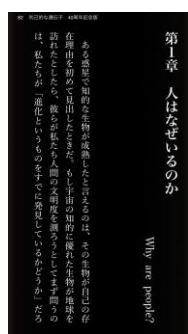 82 利己的な遺伝子 40周年記念版
第1章 人はなぜいるのか
Why are people?
ある惑星で知的な生物が成熟したと言えるのは、その生物が自己の存
在理由を初めて見出したときだ。もし宇宙の知的に優れた生物が地球を
訪れたとしたら、彼らが私たち人間の文明度を測ろうとしてまず問うの
は、私たちが「進化というものをすでに発見しているかどうか」だろ